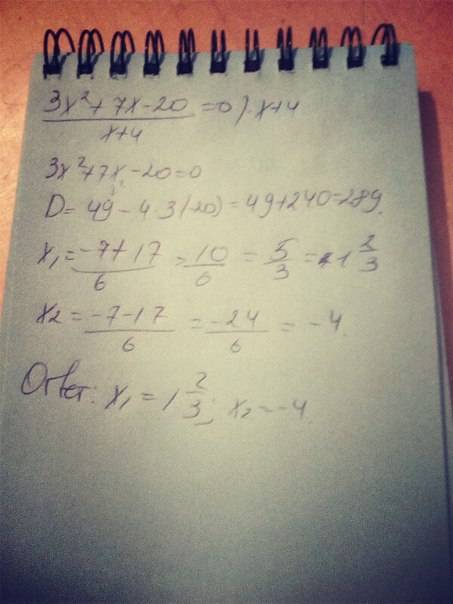 3x²+7x-20 / x+4 =0 ) · x+4
3x²+7x-20=0
D= 49-4·3(-20)=49+240=289.
x₁= -7+17 / 6 = 10/6 = 5/3 = 1 2/3
x2= -7-17 / 6 = -24/6 = -4.
Ответ: x₁=1 2/3; x₂=-4.